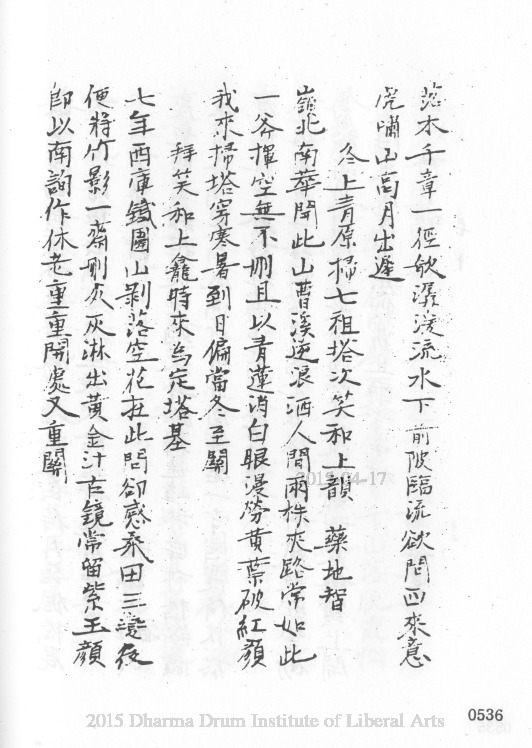 落木千章一徑欹潺湲流水下前陂臨流欲問西來意
虎嘯山高月出遲
冬上青原掃七祖塔次笑和上韻 藥地智
嶺北南華開此山曹溪逆浪洒人間兩株夾路常如此
一斧揮空無不刪且以青蓮消白眼漫勞黃葉破紅顏
我來掃塔穿寒暑到日偏當冬至關
拜笑和上龕時來為定塔基
七年西庫鐵圍山剝落空花在此間卻感桑田三變後
便將竹影一齋刪火灰淋出黃金汁古鏡常留紫玉顏
即以南詢作休老重重開處又重關
2015-04-17
0536
2015 Dharma Drum Institute of Liberal Arts